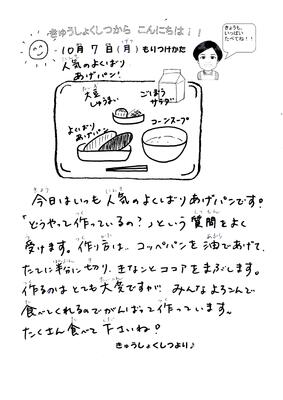 きゅうしょくしつから こんにちは！！
きょうも、
いっぱい
たべてね！！
10月 7日(月)もりつけかた
人気のよくばり
あげパン！
大豆
しゅうまい
ごぼう
サラダ
よくばり
あげパン
コーンスープ
今日はいつも人気のよくばりあげパンです。
「どうやって作っているの？」という質問をよく
受けます。作り方は、コッペパンを油であげて、
たてに半分に切り、きなことココアをまぶします。
作るのはとても大変ですが、みんなよろこんで
食べてくれるのでがんばって作っています。
たくさん食べて下さいね！
きゅうしょくしつより♪